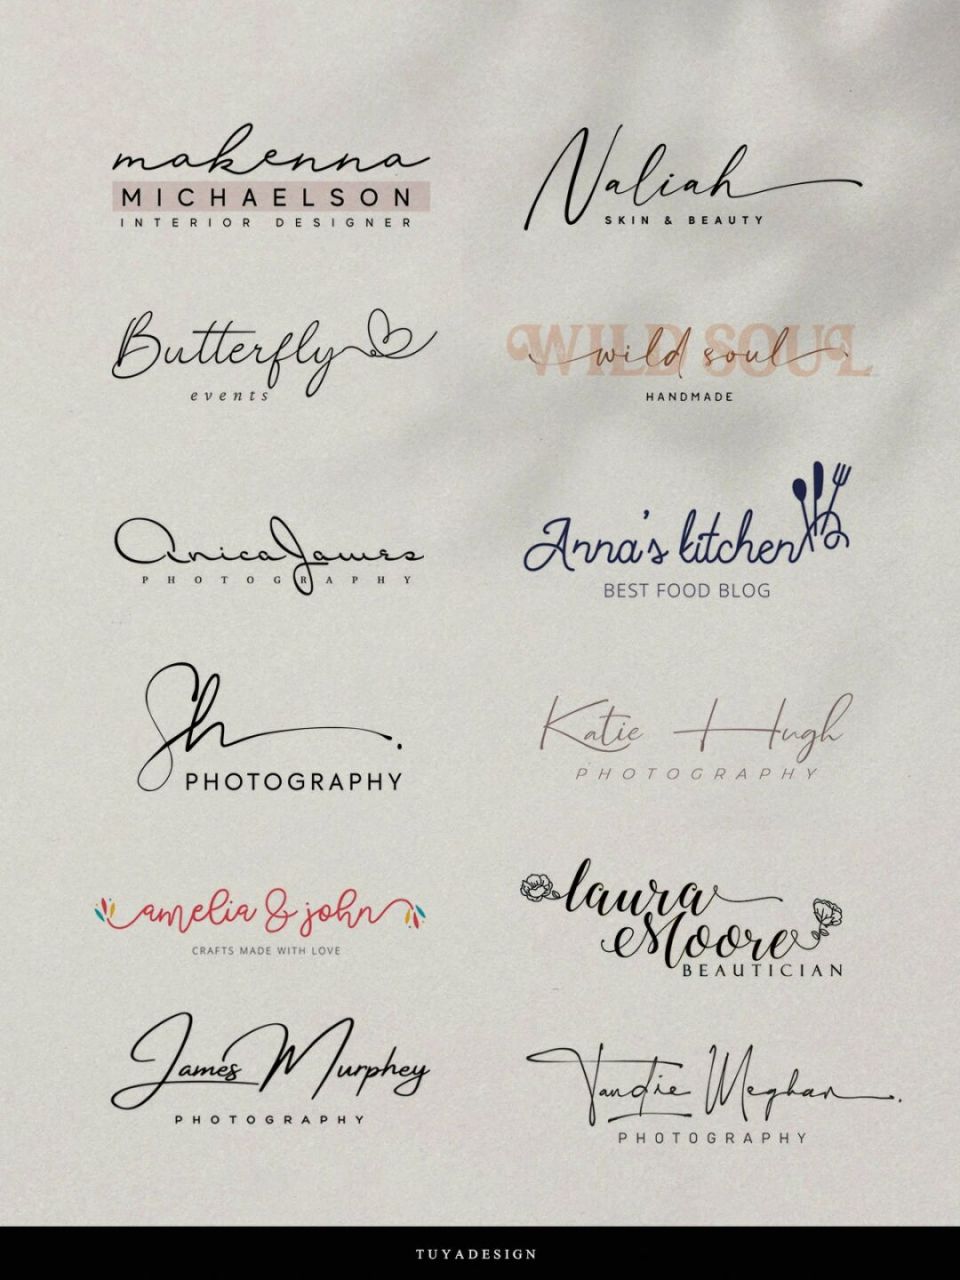 makenna
MICHAELSON
INTERIOR DESIGNER
Naliah
SKIN & BEAUTY
Butterfly
events
WILD SOUL
wild soul
HANDMADE
Anica James
PHOTOGRAPHY
Anna's kitchen
BEST FOOD BLOG
Sh
PHOTOGRAPHY
Katie Hugh
PHOTOGRAPHY
amelia & john
CRAFTS MADE WITH LOVE
laura
Moore
BEAUTICIAN
James Murphey
PHOTOGRAPHY
Tandie Meghan
PHOTOGRAPHY
TUYADESIGN